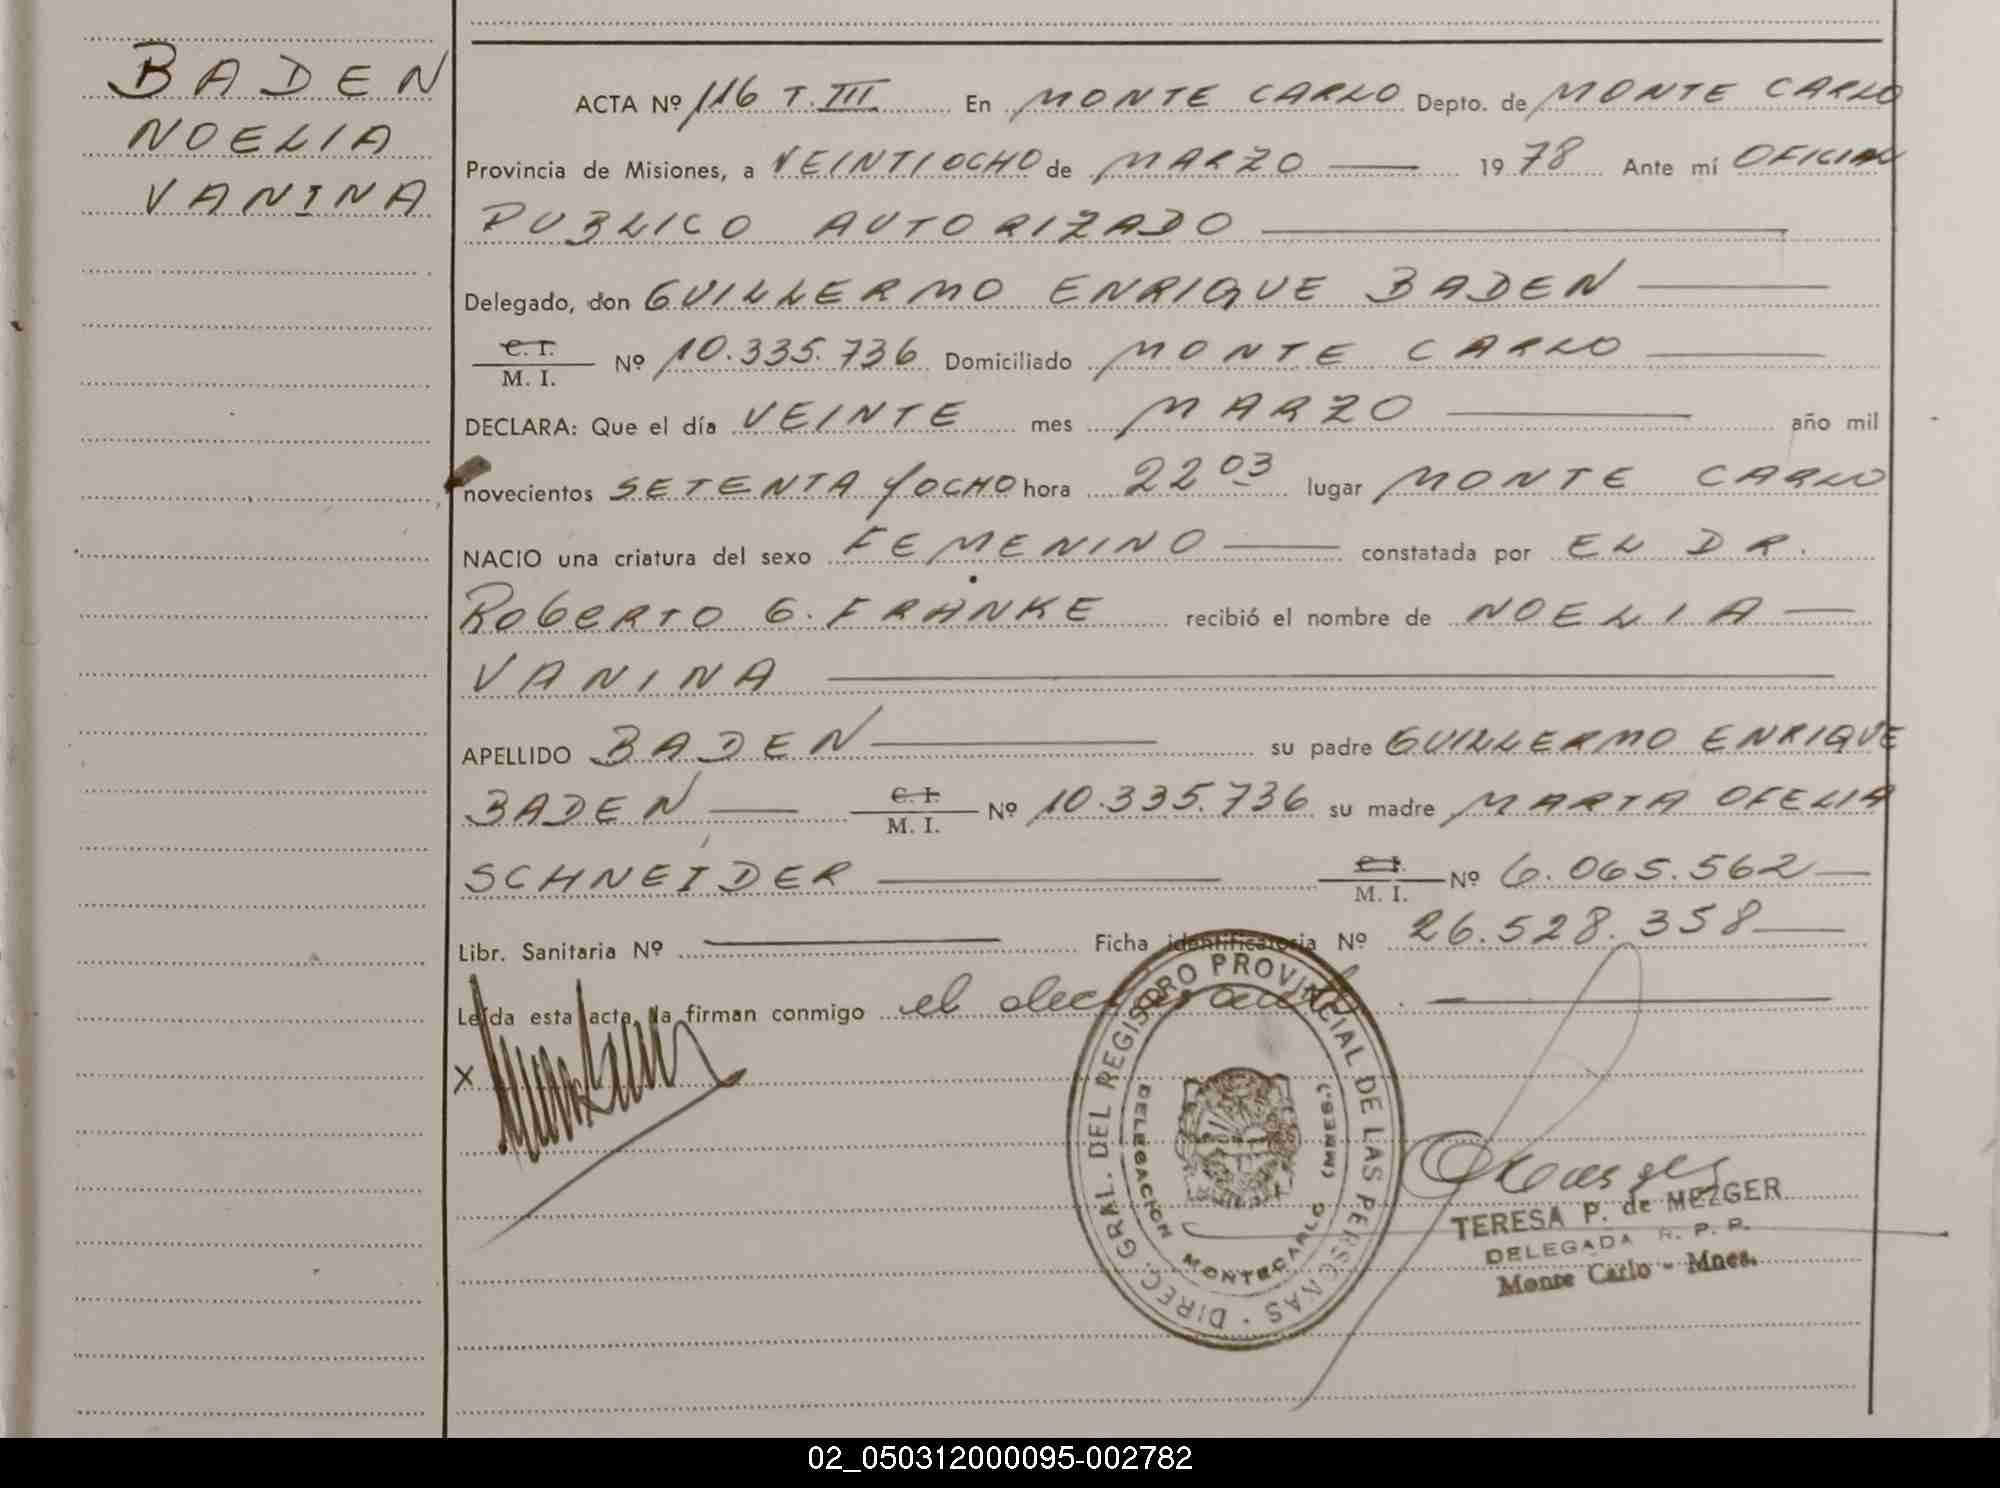 BADEN
NOELIA
VANINA
ACTA Nº 116 T. III En MONTE CARLO Depto. de MONTE CARLO
Provincia de Misiones, a VEINTIOCHO de MARZO 1978 Ante mí OFICIAL
PUBLICO AUTORIZADO
Delegado, don GUILLERMO ENRIQUE BADEN
C. I.
M. I. Nº 10.335.736 Domiciliado MONTE CARLO
DECLARA: Que el día VEINTE mes MARZO año mil
novecientos SETENTA Y OCHO hora 22 03 lugar MONTE CARLO
NACIO una criatura del sexo FEMENINO constatada por EL DR.
ROBERTO G. FRANKE recibió el nombre de NOELIA
VANINA
APELLIDO BADEN su padre GUILLERMO ENRIQUE
BADEN C. I. M. I. Nº 10.335.736 su madre MARTA OFELIA
SCHNEIDER C. I. M. I. Nº 6.065.562
Libr. Sanitaria Nº Ficha identificatoria Nº 26.528.358
Leída esta acta, la firman conmigo el declarante.
X
DIREC. GRAL. DEL REGISTRO PROVINCIAL DE LAS PERSONAS
DELEGACION MONTECARLO (MNES.)
TERESA P. de MEZGER
DELEGADA R. P. P.
Monte Carlo - Mnes.
02_050312000095-002782